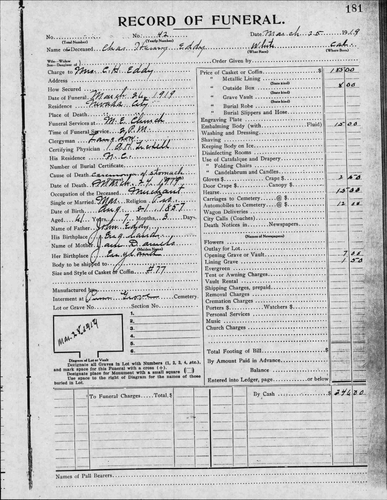 181
RECORD OF FUNERAL.
No. 42 Date March 25 1919
(Total Number) (Yearly Number)
Name of Deceased Chas. Henry Eddy White Cal.
(What Race) (Where Born)
Charge to Mrs. C. H. Eddy
Address
How Secured
Date of Funeral March 26 1919
Place of Death Nevada City
Funeral Services at M. E. Church
Time of Funeral Service 2 P.M.
Clergyman
Certifying Physician
His Residence N. C.
Number of Burial Certificate
Cause of Death of Stomach
Date of Death March 24 1919
Occupation of the Deceased Merchant
Single or Married Mar. Religion
Date of Birth Aug. 21 1857
Aged 61 Years 7 Months 3 Days
Name of Father John Eddy
His Birthplace England
Name of Mother Jane Daniels
(Maiden Name)
Her Birthplace England
Body to be shipped to
Size and Style of Casket or Coffin #77
Manufactured by
Interment at Pine Grove Cemetery
Lot or Grave No.
1
2
3
4
5
6
Mar. 28, 1919
Diagram of Lot or Vault
Designate all Graves in Lot with Numbers (1, 2, 3, 4, etc.)
and mark space for this Funeral with a cross (+).
Designate place for Monument with a small square
Use space to right of Diagram for Names of those
buried in Lot.
Order Given by
Price of Casket or Coffin $
" Metallic Lining
" Outside Box 8 00
" Grave Vault
" Burial Robe
" Burial Slippers and Hose
Engraving Plate
Embalming Body (with Fluid) 15 00
Washing and Dressing
Shaving
Keeping Body on Ice
Disinfecting Rooms
Use of Catafalque and Drapery
" Folding Chairs
" Candelabrum and Candles
Gloves $ Crape $ 2 50
Door Crape $ Canopy $
Hearse 15 00
Carriages to Cemetery @ $
Automobiles to Cemetery @ $ 12 00
Wagon Deliveries
City Calls (Coaches)
Death Notices in Newspapers
Flowers
Outlay for Lot
Opening Grave or Vault 7 00
Lining Grave 1 50
Evergreen
Tent or Awning Charges
Vault Rental
Shipping Charges, prepaid
Removal Charges
Cremation Charges
Porters $ Watchers $
Personal Services
Music
Church Charges
Total Footing of Bill $
By Amount Paid in Advance
Balance
Entered into Ledger, page or below $
To Funeral Charges, Total $ By Cash $
Names of Pall Bearers